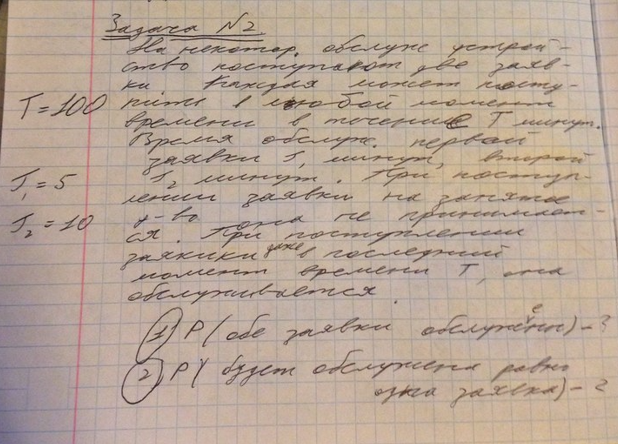 Задача №2
На некотор. обслуж устрой-
ство поступают две заяв-
ки Каждая может посту-
T=100 пить в любой момент
времени в течение T минут.
Время обслуж. первой
заявки T₁ минут, второй
T₁=5 T₂ минут. При поступ-
лении заявки на занятое
T₂=10 у-во она не принимает-
ся. При поступлении
заявки даже в последний
момент времени T, она
обслуживается.
1) P(обе заявки обслужены)-?
2) P(будет обслужена ровно
одна заявка)-?